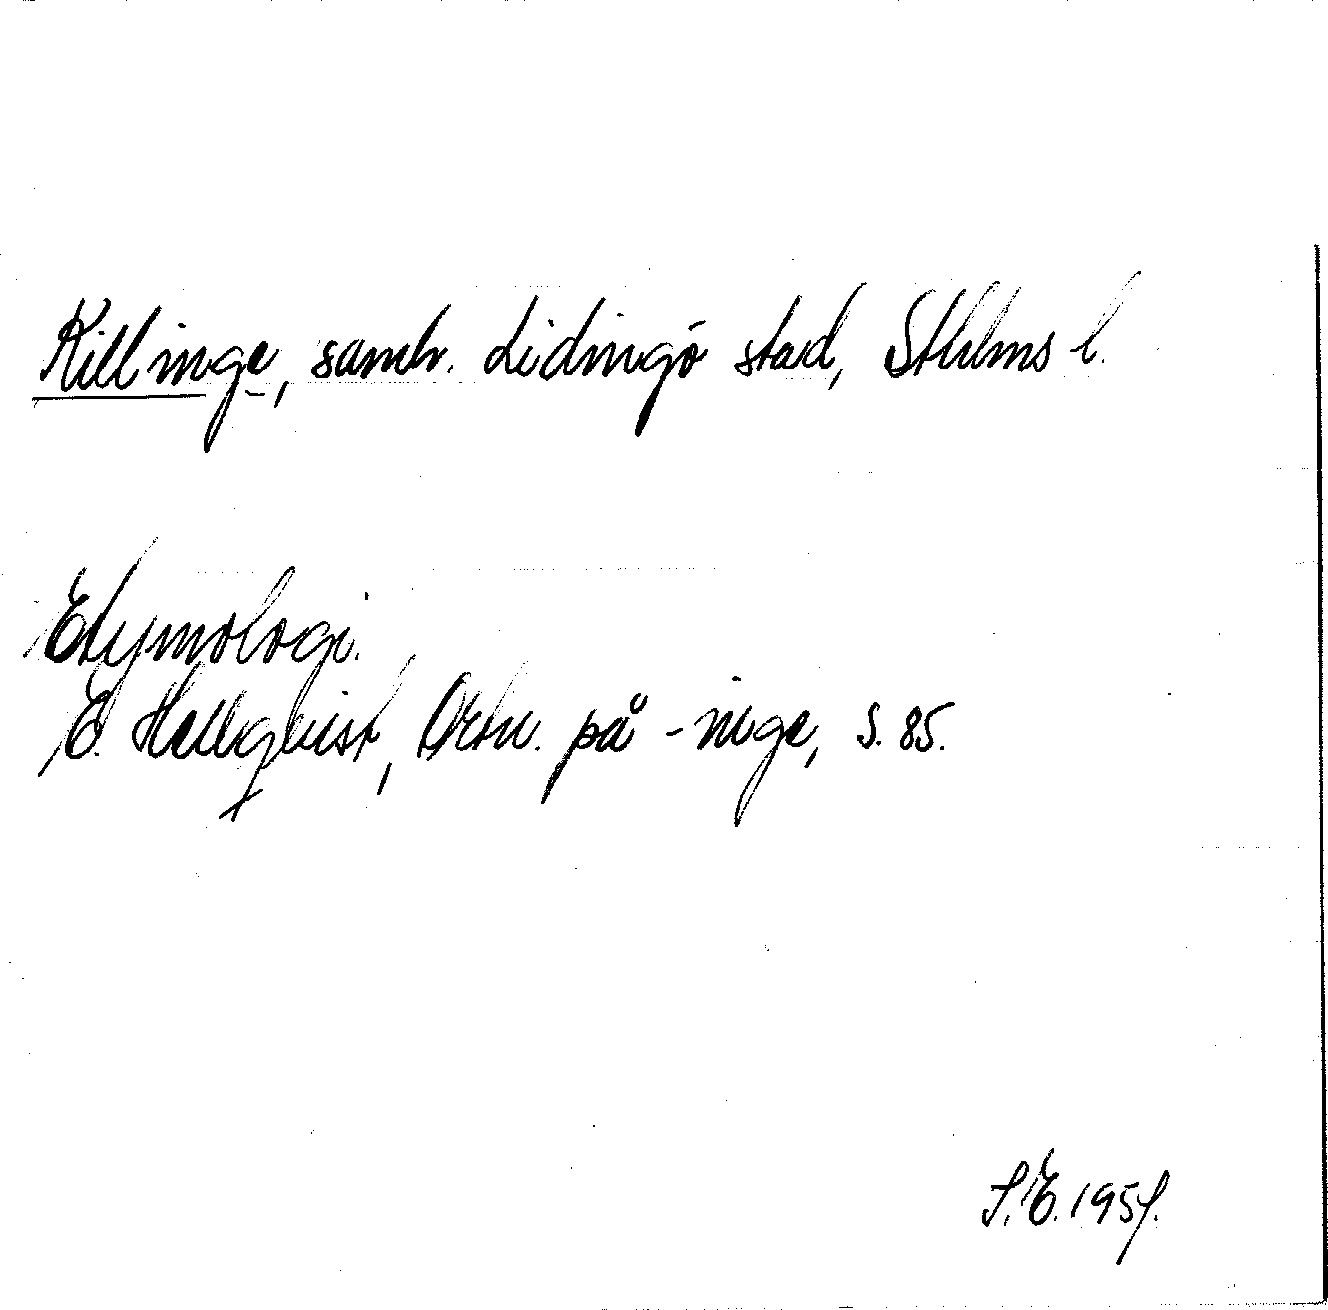 Killinge, samh. Lidingö stad, Sthlms l.
Etymologi.
E. Hellquist, Ortn. på -inge, s. 85.
S. E. 195